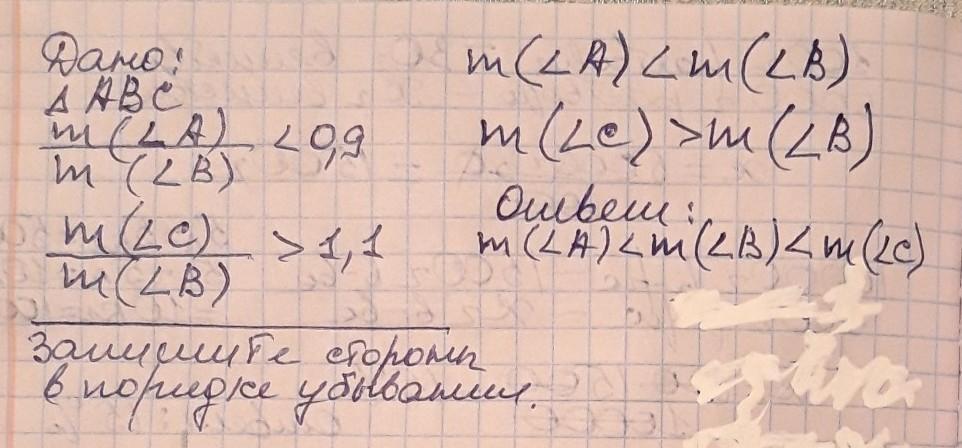 Дано:
Δ ABC
m(∠A)
m(∠B)
<0,9
m(∠C)
m(∠B)
>1,1
Запишите стороны
в порядке убывания.
m(∠A)<m(∠B)
m(∠C)>m(∠B)
Ответ:
m(∠A)<m(∠B)<m(∠C)